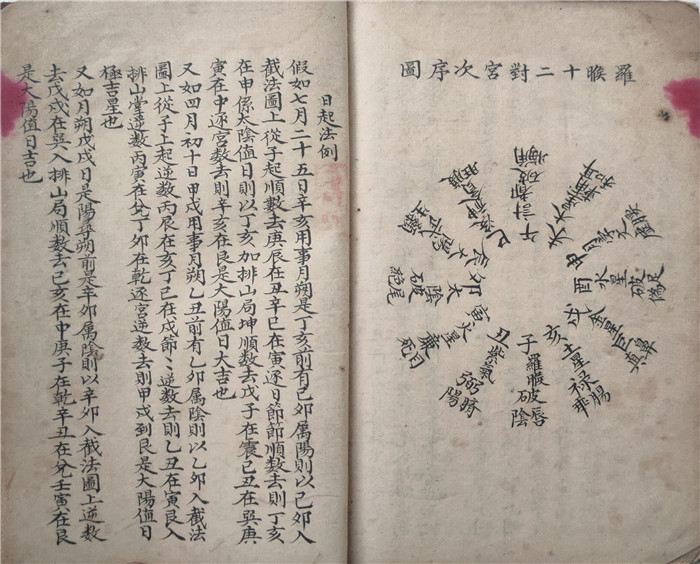 羅睺十二對宮次序圖
子羅睺破唇陰
丑紫氣弼
陽
寅火星
卯太
陰破
午計都破
酉水星破
戌金星巨
亥土星禄
日起法例
假如七月二十五日辛亥用事月朔是丁亥前有己卯属陽則以己卯入
截法圖上從子起順數去庚辰在丑辛巳在寅逐日節節順數去則丁亥
在申係太陰值日則以丁亥加排山局坤順數去戊子在震己丑在巽庚
寅在中逐宮數去則辛亥在艮是大陽值日大吉也
又如四月初十日甲戌用事月朔乙丑前有乙卯属陰則以乙卯入截法
圖上從子上起逆數丙辰在亥丁巳在戌節々逆數去則乙丑在寅艮入
排山掌逆數丙寅在兌丁卯在乾逐宮逆數去則甲戌到艮是大陽值日
極吉星也
又如月朔戊戌日是陽尋朔前是辛卯属陰則以辛卯入截法圖上逆數
去戊戌在巽入排山局順數去己亥在中庚子在乾辛丑在兌壬寅在艮
是大陽值日吉也